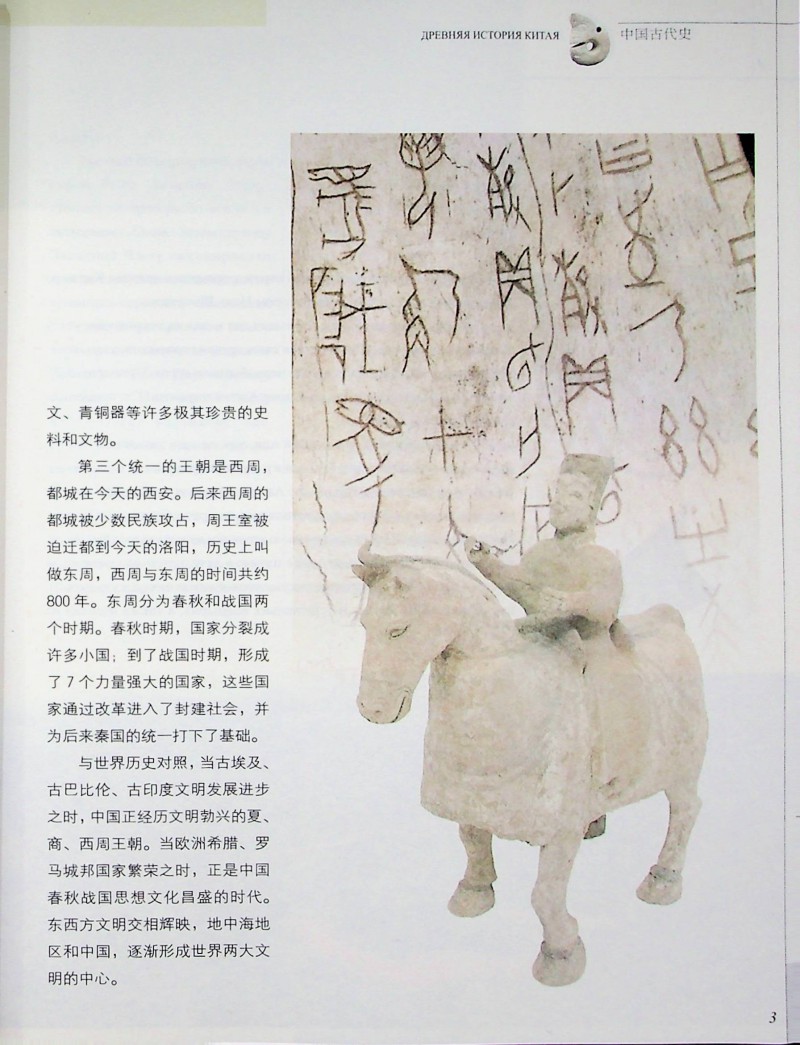 ДРЕВНЯЯ ИСТОРИЯ КИТАЯ
中国古代史
文、青铜器等许多极其珍贵的史
料和文物。
第三个统一的王朝是西周，
都城在今天的西安。后来西周的
都城被少数民族攻占，周王室被
迫迁都到今天的洛阳，历史上叫
做东周，西周与东周的时间共约
800年。东周分为春秋和战国两
个时期。春秋时期，国家分裂成
许多小国；到了战国时期，形成
了7个力量强大的国家，这些国
家通过改革进入了封建社会，并
为后来秦国的统一打下了基础。
与世界历史对照，当古埃及、
古巴比伦、古印度文明发展进步
之时，中国正经历文明勃兴的夏、
商、西周王朝。当欧洲希腊、罗
马城邦国家繁荣之时，正是中国
春秋战国思想文化昌盛的时代。
东西方文明交相辉映，地中海地
区和中国，逐渐形成世界两大文
明的中心。
3